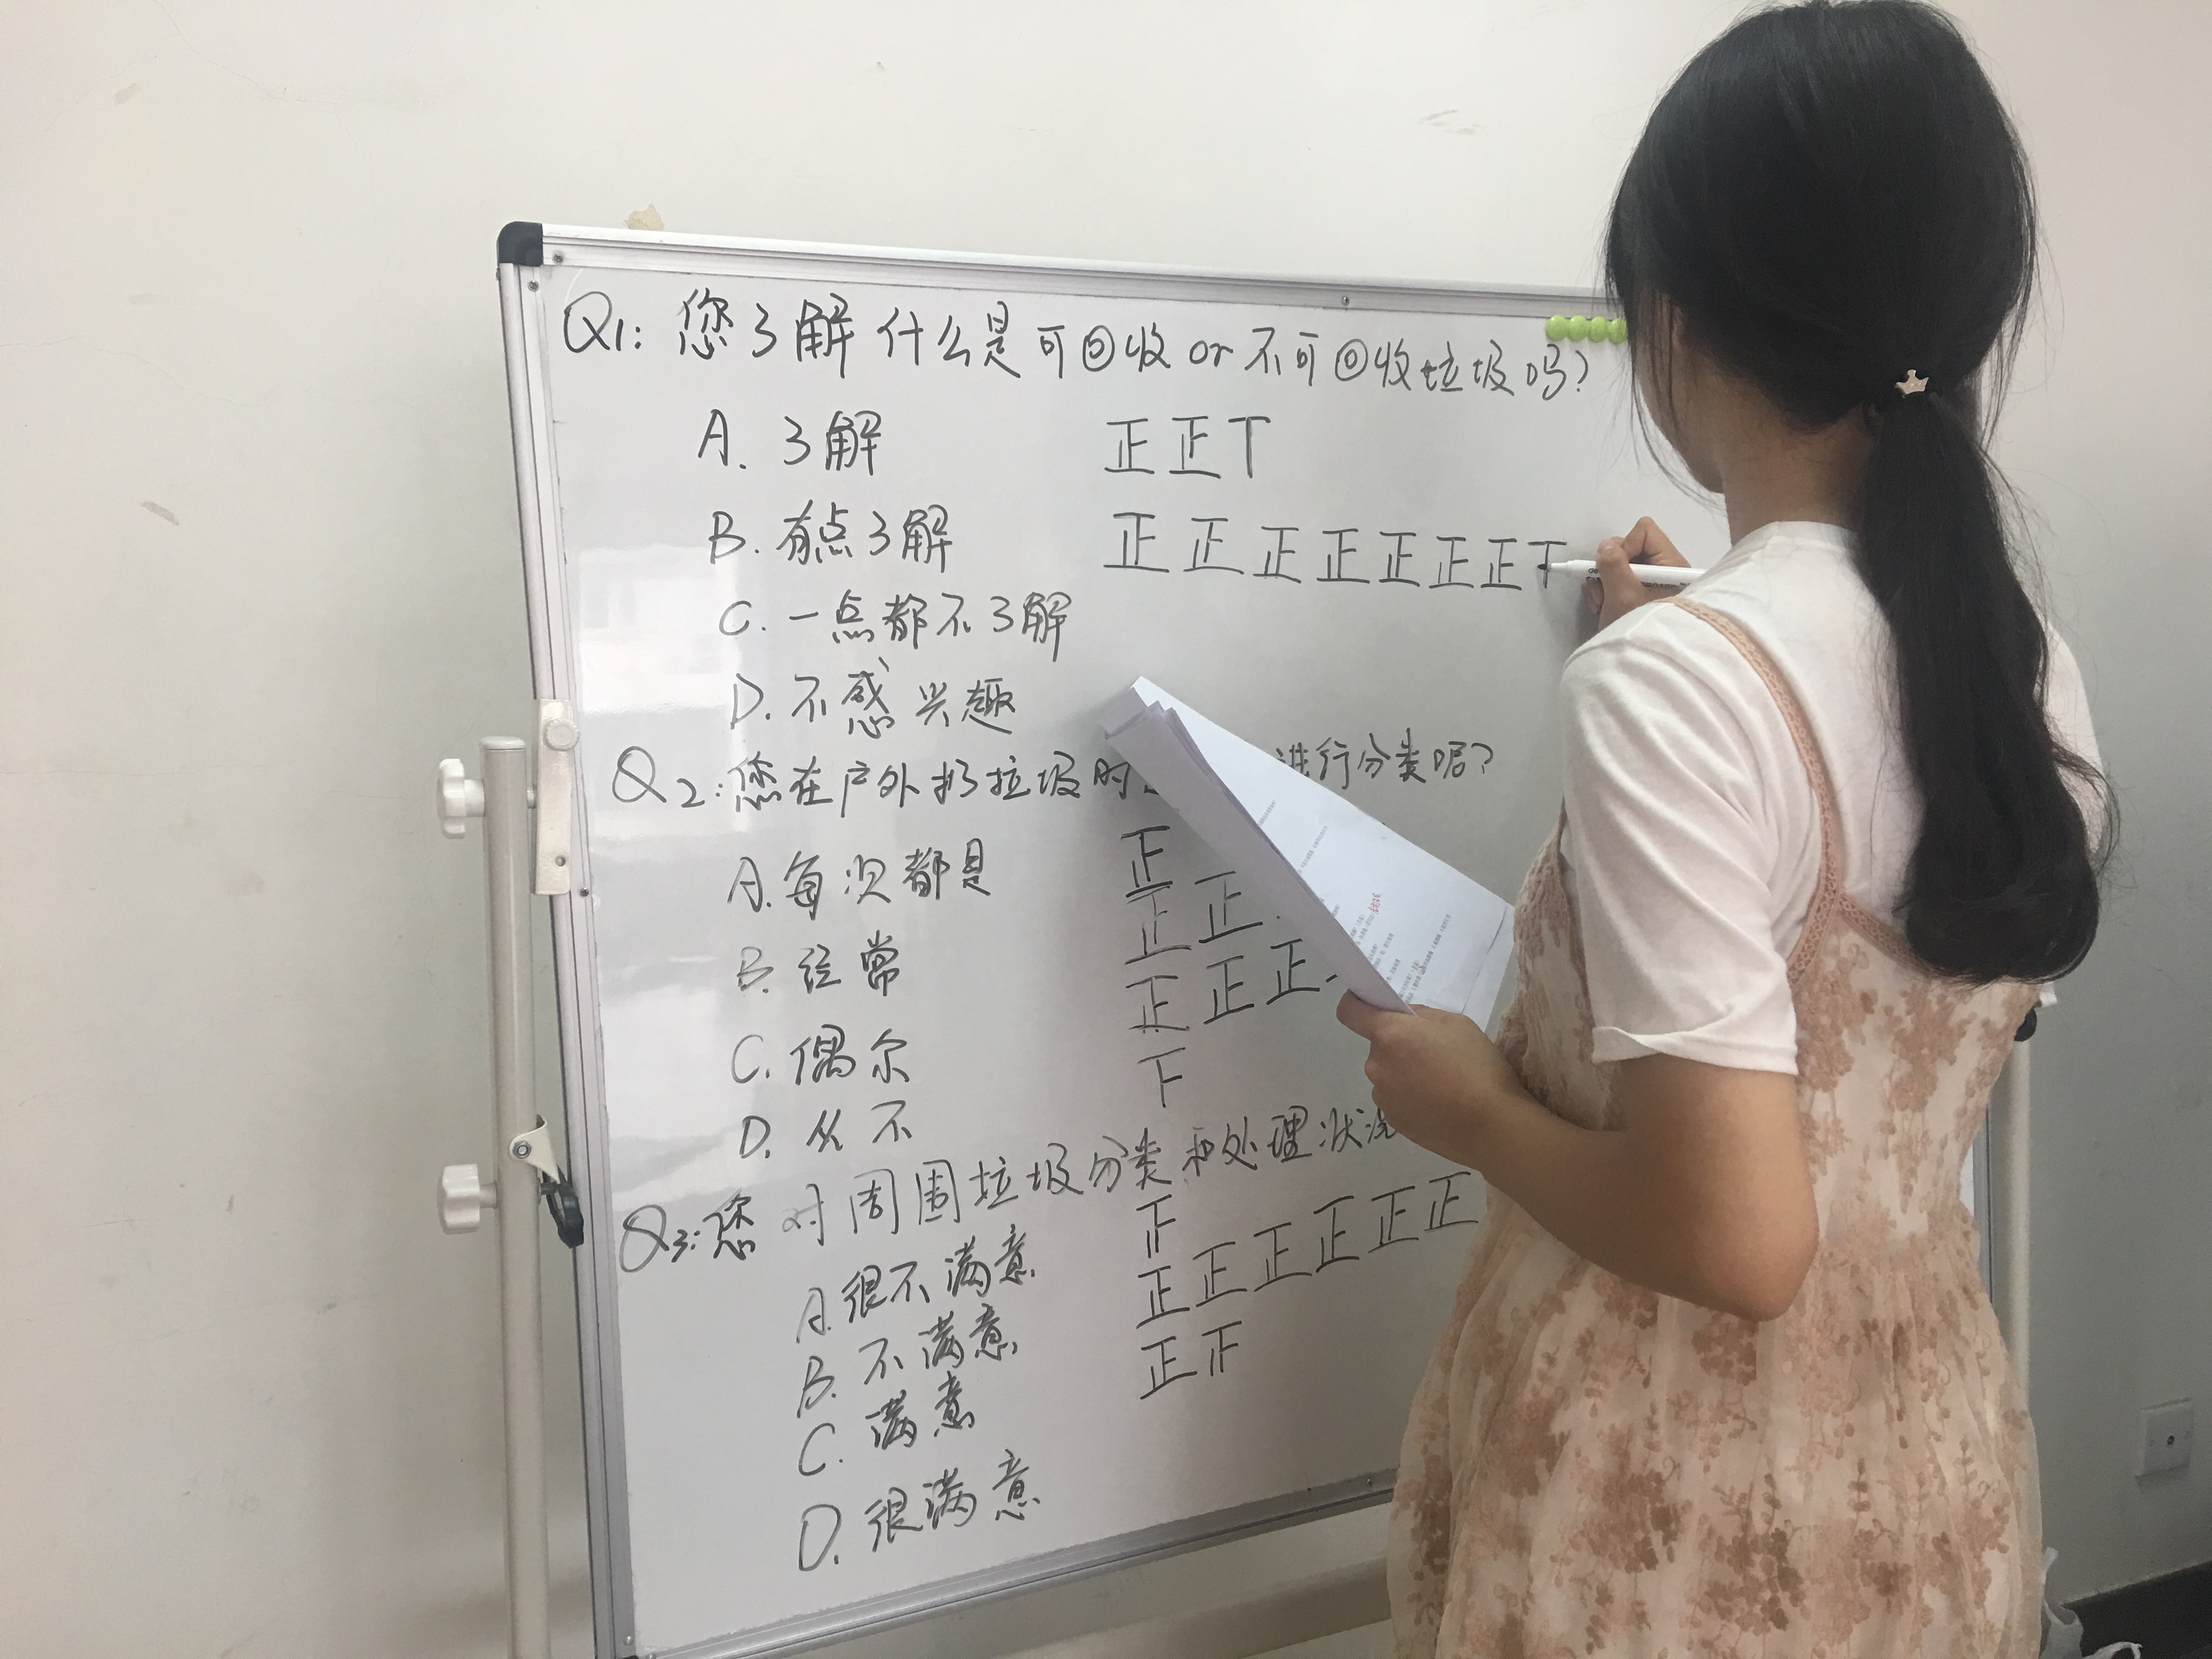 Q1: 您了解什么是可回收or不可回收垃圾吗?
A. 了解 正正丅
B. 有点了解 正正正正正正正
C. 一点都不了解
D. 不感兴趣
Q2: 您在户外扔垃圾时 进行分类呢?
正
A. 每次都是
正正
B. 经常
正正正
C. 偶尔
下
D. 从不
Q3: 您对周围垃圾分类和处理状况
A. 很不满意
正正正正正正
B. 不满意
正
C. 满意
D. 很满意